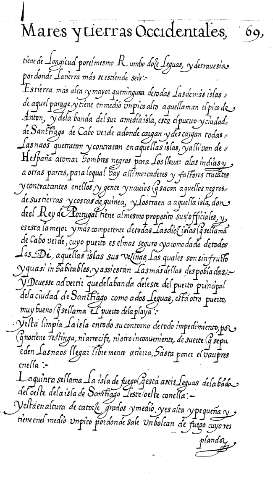 Mares y tierras Occidentales, 69,
tiene de Longitud por el mesmo Rumbo doze Leguas, y de travesia
por donde la tierra mas se estiende seis:
Es tierra mas alta y mayor que ninguna de todas las demas islas
de aquel parage, y tiene en medio un pico alto a que llaman el pico de
Anton, y de la banda del sur a medio isla, esta el puerto y ciudad
de Santiago de Cabo verde adonde cargan y descargan todas
Las naos que tratan y contratan en aquellas islas, y alli van de
Hespaña a tomar hombres negros para los llevar a las indias, y
a otras partes, para lo qual hay alli mercaderes y factores tratantes
y contratantes en ellos, y gente y navios que sacan aquellos negros
de sus tierras y costas de guinea, y los traen a aquella isla, don
de el Rey de Portugal tiene al mesmo proposito sus officiales, y
es esta la mejor y mas competente de todas Las diez islas que llaman
de Cabo verde, cuyo puerto es el mas seguro y acomodado de todos
Los de aquellas islas sus vezinas Las quales son sin fruto
y quasi inhabitables, y assi estan Las mas dellas despobladas:
Y Devesse advertir que de la banda del este del puerto principal
de la ciudad de Santiago como a dos Leguas, esta otro puerto
muy bueno que se llama el puerto de la playa:
Y esta limpia La isla en todo su contorno de todo impedimento, por
que no tiene restinga, ni arrecife, ni otro inconveniente, de suerte que se pue
den Las naos llegar libremente a tierra, hasta poner el bauprés
en ella:
La quinta se llama La isla de fuego que esta a seis Leguas de la banda
del oeste de la isla de Santiago Leste oeste con ella:
Y esta en altura de catorze grados y medio, y es alta y pequeña y
tiene en el medio un pico por donde sale un bolcan de fuego cuyo res
plandor